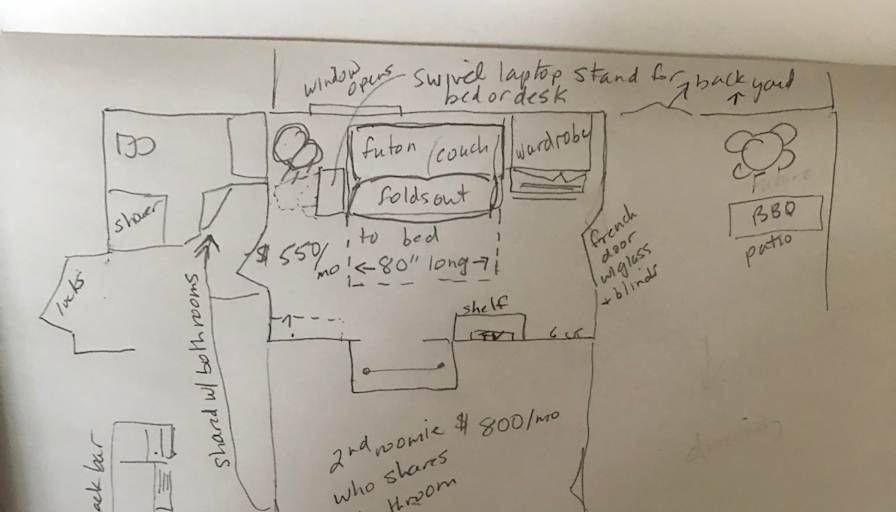 window
opens
swivel laptop stand for
bed or desk
back yard
futon / couch
folds out
to bed
80" long
wardrobe
$550/
mo
shower
locks
shared w/ bothrooms
shelf
TV
french
door
w/glass
+ blinds
BBQ
patio
2nd roomie $800/mo
who shares
throom
ack bar